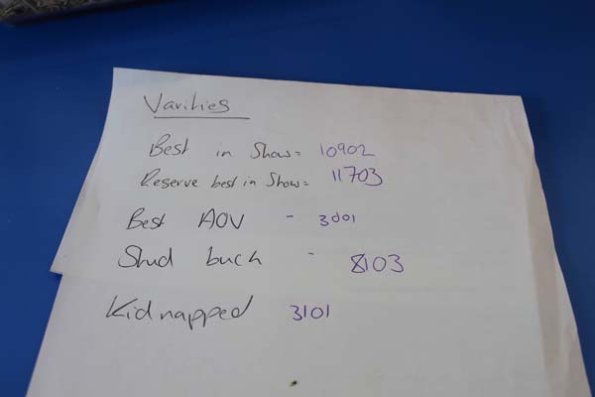 Varities
Best in Show= 10902
Reserve best in Show= 11703
Best AOV - 3001
Stud buck - 8103
Kidnapped 3101